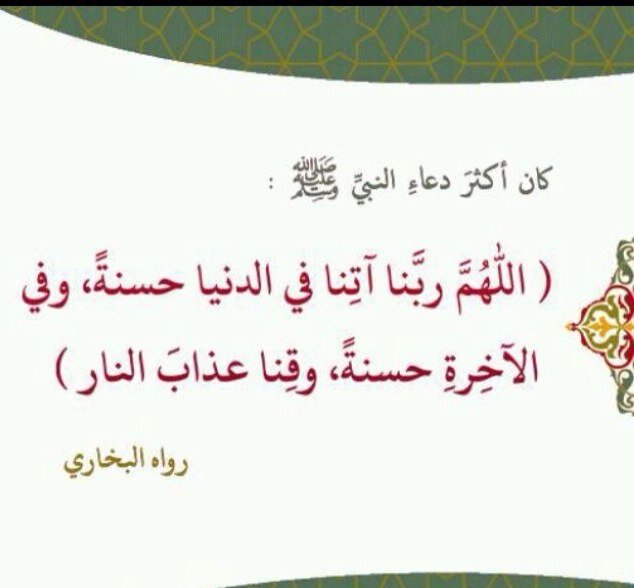 كان أكثرَ دعاءِ النبيِّ ﷺ :
( اللَّهُمَّ ربَّنا آتِنا في الدنيا حسنةً، وفي
الآخِرةِ حسنةً، وقِنا عذابَ النار )
رواه البخاري